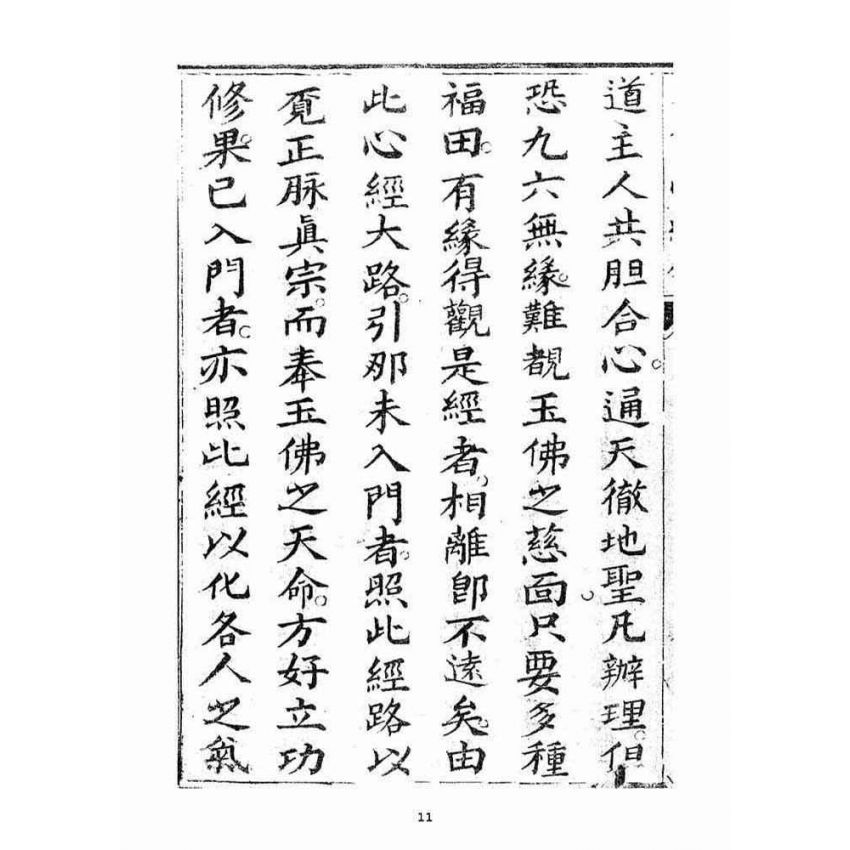 道主人共胆合心。通天徹地聖凡辦理。但
恐九六無緣。難覩玉佛之慈面。只要多種
福田。有緣得觀是經者。相離卽不遠矣。由
此心經大路。引那未入門者。照此經路以
覓正脉眞宗。而奉玉佛之天命。方好立功
修果。已入門者。亦照此經以化各人之氣
11